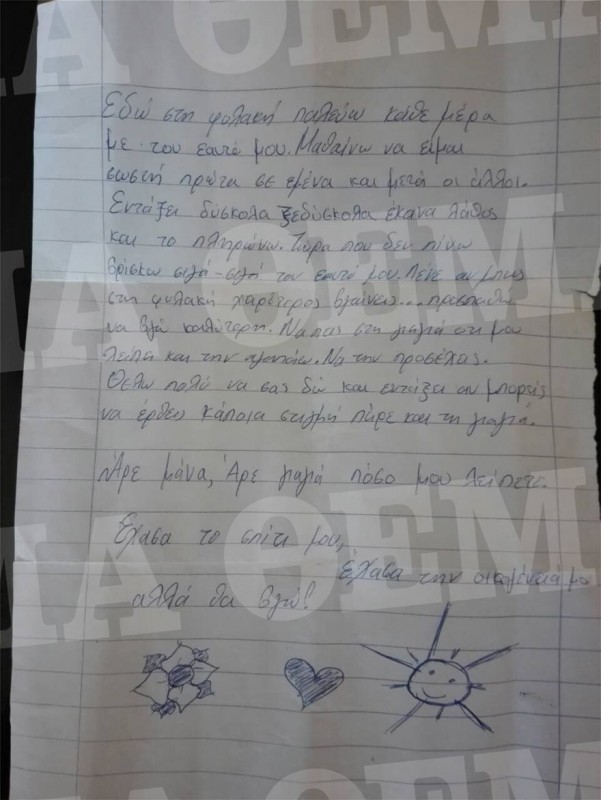 Εδώ στη φυλακή παλεύω κάθε μέρα
με τον εαυτό μου. Μαθαίνω να είμαι
σωστή πρώτα σε εμένα και μετά οι άλλοι.
Εντάξει δύσκολα ξεδύσκολα έκανα λάθος
και το πληρώνω. Τώρα που δεν πίνω
βρίσκω σιγά-σιγά τον εαυτό μου. Λένε αν μπεις
στη φυλακή χειρότερος βγαίνεις... προσπαθώ
να βγω καλύτερη. Να πεις στη γιαγιά ότι μου
λείπει και την αγαπάω. Να την προσέχεις.
Θέλω πολύ να σας δω και εντάξει αν μπορείς
να έρθεις κάποια στιγμή πάρε και τη γιαγιά.
Άρε μάνα, Άρε γιαγιά πόσο μου λείπετε.
Έχασα το σπίτι μου,
έχασα την οικογένειά μου
αλλά θα βγω!
ΘΕΜΑ